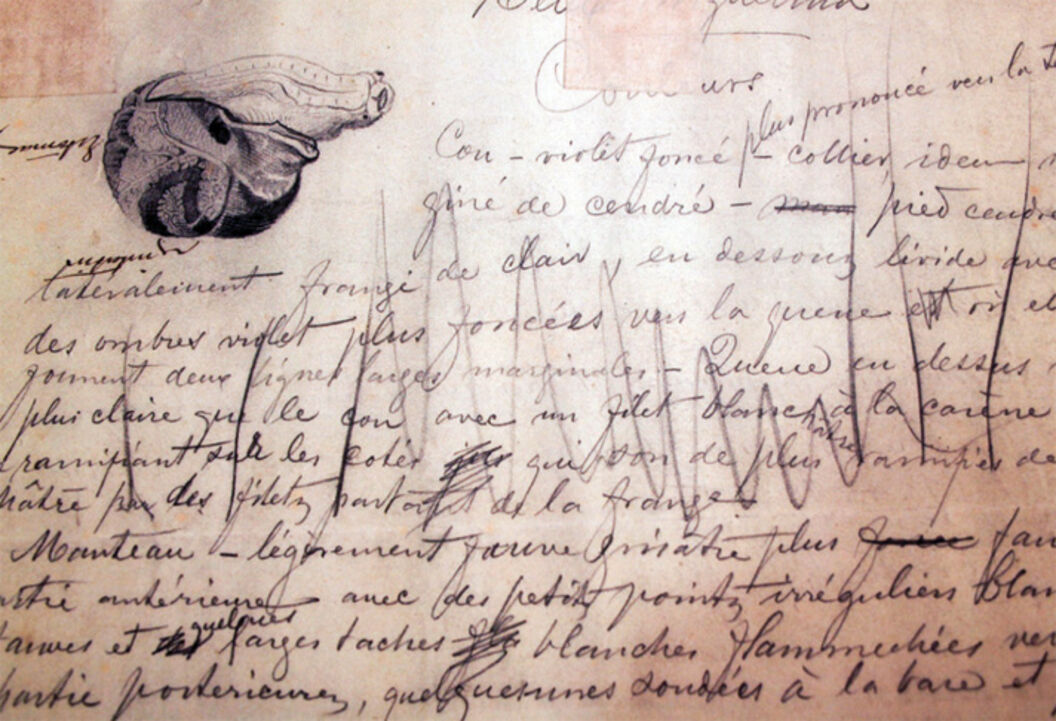 Couleurs
plus prononcé vers la
Cou - violet foncé - collier, idem
giné de cendré - pied cendré
latéralement frangé de clair, en dessous livide avec
des ombres violet plus foncées vers la queue et
forment deux lignes larges marginales - Queue en dessus
plus claire que le cou avec un filet blanchâtre à la carène
ramifiant sur les côtés qui son de plus ramifiés de
hâtre par des filets partant de la frange
Manteau - légèrement fauve grisâtre plus
artie antérieure avec des petits points irréguliers blan
fauves et quelques larges taches blanches flammechées ver
partie postérieure, quelquesunes soudées à la base et